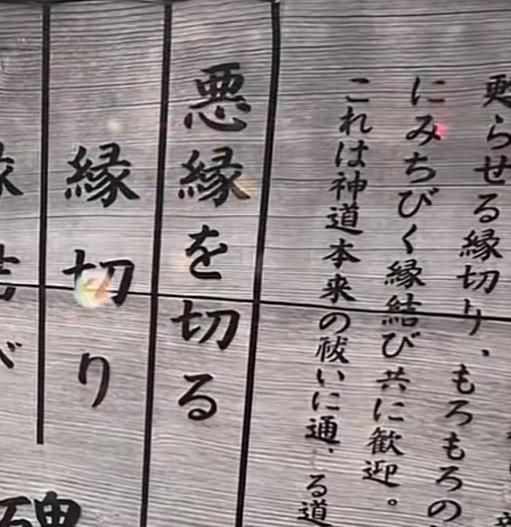 甦らせる縁切り、もろもろの
にみちびく縁結び共に歓迎。
これは神道本来の祓いに通 る道
悪縁を切る
縁切り
碑